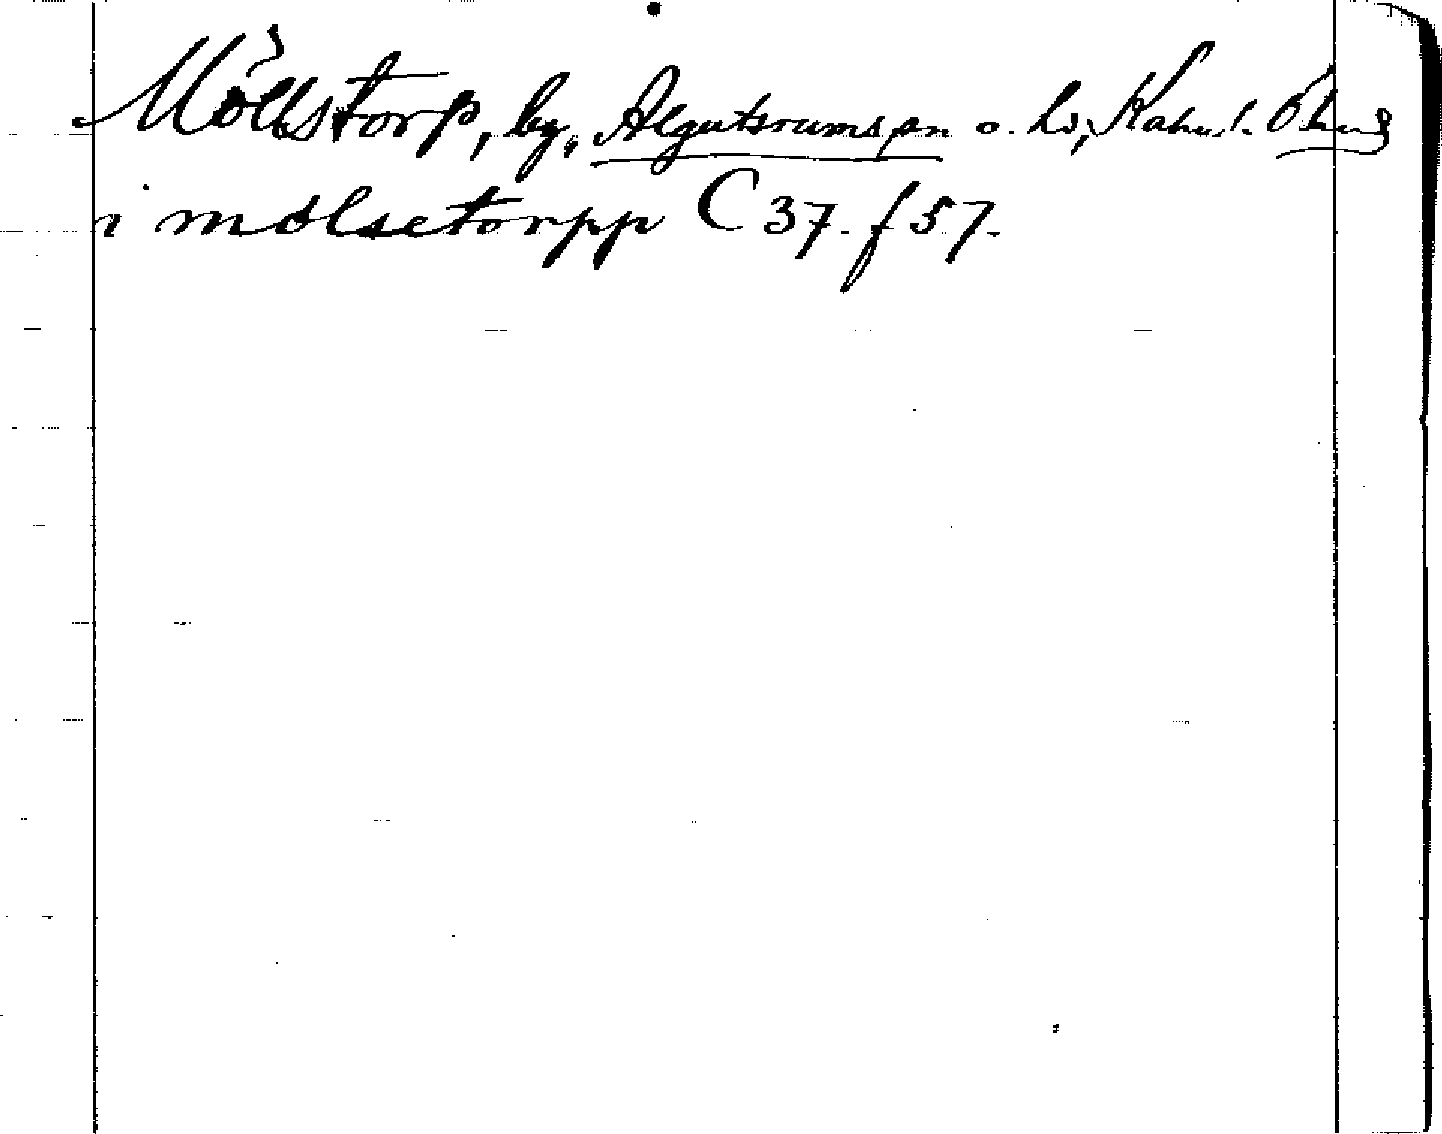 Möllstorp, by, Algutsrums sn o. hd, Kalm. l. Öland
i mølsetorpp C 37. f 57.